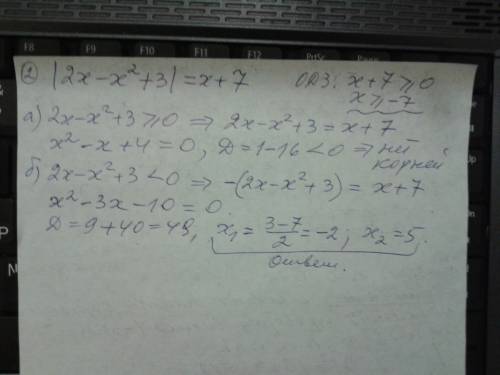 F8 F9 F10 F11 F12 PrtSc Pause
② |2x-x²+3| = x+7 ОДЗ: x+7 ≥ 0
x ≥ -7
а) 2x-x²+3 ≥ 0 ⇒ 2x-x²+3 = x+7
x²-x+4 = 0, D = 1-16 < 0 ⇒ нет корней
б) 2x-x²+3 < 0 ⇒ -(2x-x²+3) = x+7
x²-3x-10 = 0
D = 9+40 = 49, x₁ = (3-7)/2 = -2; x₂ = 5.
ответ.